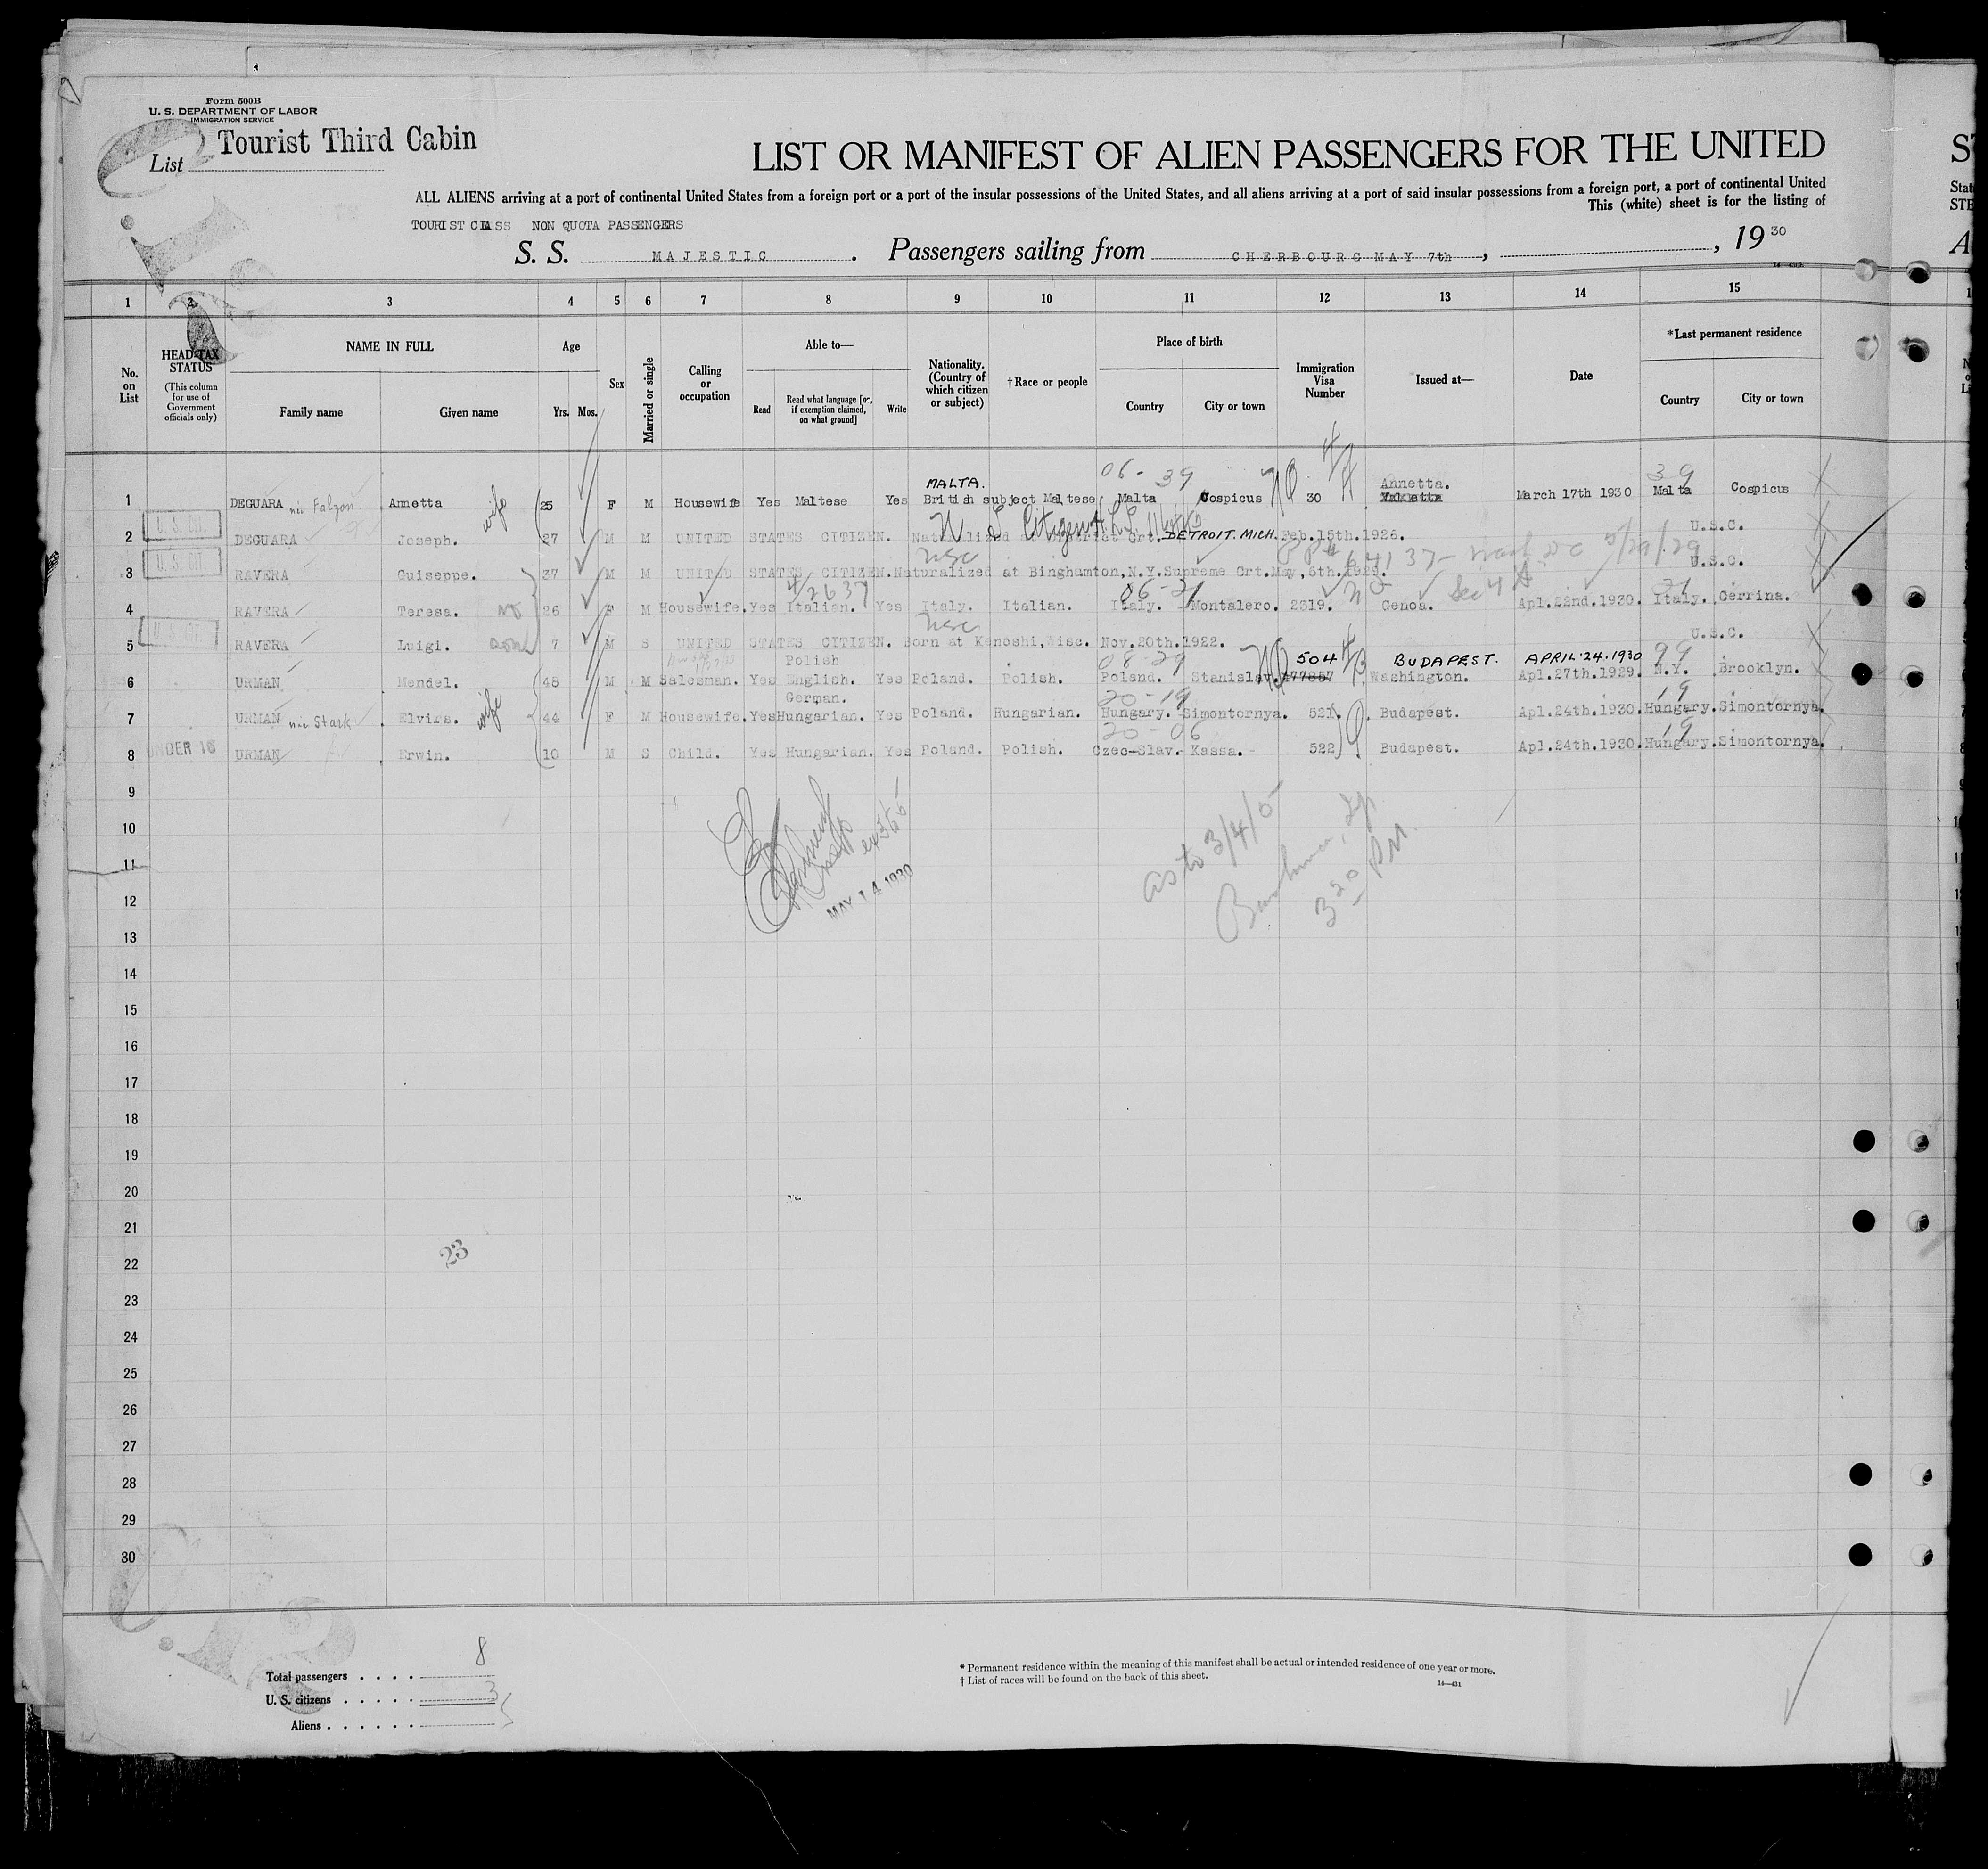 Form 500B
U. S. DEPARTMENT OF LABOR
IMMIGRATION SERVICE
List Tourist Third Cabin
LIST OR MANIFEST OF ALIEN PASSENGERS FOR THE UNITED
ALL ALIENS arriving at a port of continental United States from a foreign port or a port of the insular possessions of the United States, and all aliens arriving at a port of said insular possessions from a foreign port, a port of continental United
This (white) sheet is for the listing of
TOURIST CLASS NON QUOTA PASSENGERS
S. S. MAJESTIC. Passengers sailing from CHERBOURG MAY 7th, , 19 30
1 2 3 4 5 6 7 8 9 10 11 12 13 14 15
No. on List
HEAD-TAX STATUS
(This column for use of Government officials only)
NAME IN FULL
Family name Given name
Age
Yrs. Mos.
Sex
Married or single
Calling or occupation
Able to—
Read Read what language [or, if exemption claimed, on what ground] Write
Nationality. (Country of which citizen or subject)
†Race or people
Place of birth
Country City or town
Immigration Visa Number
Issued at—
Date
*Last permanent residence
Country City or town
06- 39 39
MALTA. Annetta.
1 DEGUARA née Falzon Annetta wife 25 F M Housewife Yes Maltese Yes British subject Maltese Malta Cospicus NQ 30 March 17th 1930 Malta Cospicus
U. S. Citizen U.S.C.
2 U. S. CIT. DEGUARA Joseph. 27 M M UNITED STATES CITIZEN. Naturalized at District Crt. DETROIT. MICH. Feb.15th.1926.
USC U.S.C.
3 U. S. CIT. RAVERA Guiseppe. 37 M M UNITED STATES CITIZEN. Naturalized at Binghamton,N.Y.Supreme Crt.May,5th.1929.
4/2637 06-21 Sec 4 A 21
4 RAVERA Teresa. 26 F M Housewife. Yes Italian. Yes Italy. Italian. Italy. Montalero. 2319. Genoa. Apl.22nd.1930. Italy. Cerrina.
USC U.S.C.
5 RAVERA Luigi. 7 M S UNITED STATES CITIZEN. Born at Kenoshi,Wisc. Nov.20th.1922.
Polish 08-29 NQ 504 BUDAPEST. APRIL·24·1930 99
6 URMAN Mendel. 48 M M Salesman. Yes English. Yes Poland. Polish. Poland. Stanislav. 477857 Washington. Apl.27th.1929. N.Y. Brooklyn.
German. 20-19 19
7 URMAN née Stark Elvirs. wife 44 F M Housewife. Yes Hungarian. Yes Poland. Hungarian. Hungary. Simontornya. 521. Budapest. Apl.24th.1930. Hungary. Simontornya.
20-06 19
8 UNDER 16 URMAN Erwin. 10 M S Child. Yes Hungarian. Yes Poland. Polish. Czec-Slav. Kassa. 522 Budapest. Apl.24th.1930. Hungary. Simontornya.
9
10
as to 3/4/5
11
MAY 14 1930
12
3 20 PM.
13
14
15
16
17
18
19
20
21
23
22
23
24
25
26
27
28
29
30
Total passengers . . . . 8
U. S. citizens . . . . . 3
Aliens . . . . . .
* Permanent residence within the meaning of this manifest shall be actual or intended residence of one year or more.
† List of races will be found on the back of this sheet.